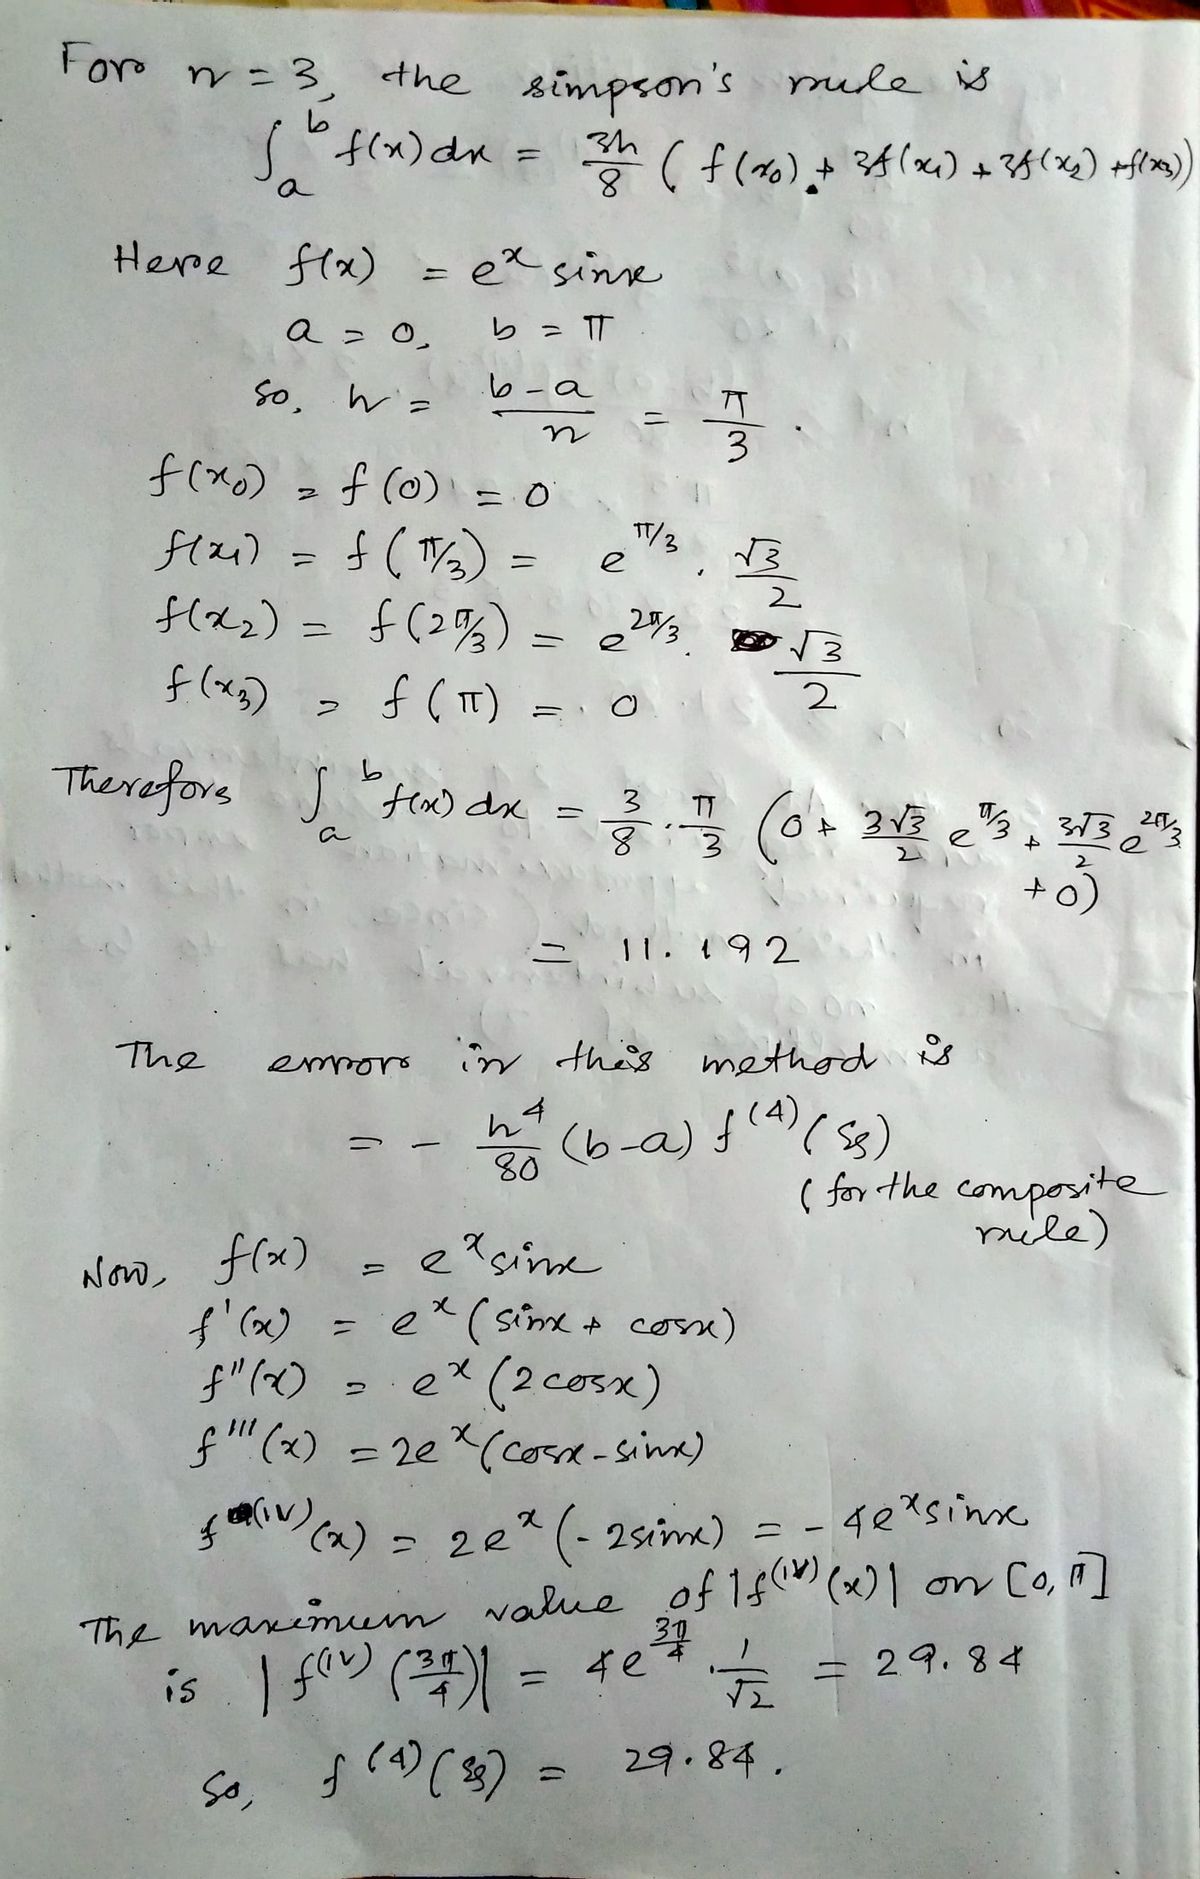 For n = 3, the simpson's rule is
∫_a^b f(x) dx = 3h/8 ( f(x₀) + 3f(x₁) + 3f(x₂) + f(x₃))
Here f(x) = e^x sinx
a = 0, b = π
so, h = (b-a)/n = π/3 .
f(x₀) = f(0) = 0
f(x₁) = f(π/3) = e^{π/3} . √3/2
f(x₂) = f(2π/3) = e^{2π/3} . √3/2
f(x₃) = f(π) = 0
Therefore ∫_a^b f(x) dx = 3/8 . π/3 (0 + 3√3/2 e^{π/3} + 3√3/2 e^{2π/3}
+ 0)
= 11.192
The error in this method is
= - h⁴/80 (b-a) f^{(4)}(ξ)
( for the composite
rule)
Now, f(x) = e^x sinx
f'(x) = e^x ( sinx + cosx)
f''(x) = e^x (2cosx)
f'''(x) = 2e^x (cosx - sinx)
f^{(iv)}(x) = 2e^x (- 2sinx) = - 4e^x sinx
The maximum value of |f^{(iv)}(x)| on [0, π]
is |f^{(iv)}(3π/4)| = 4e^{3π/4} . 1/√2 = 29.84
So, f^{(4)}(ξ) = 29.84 .